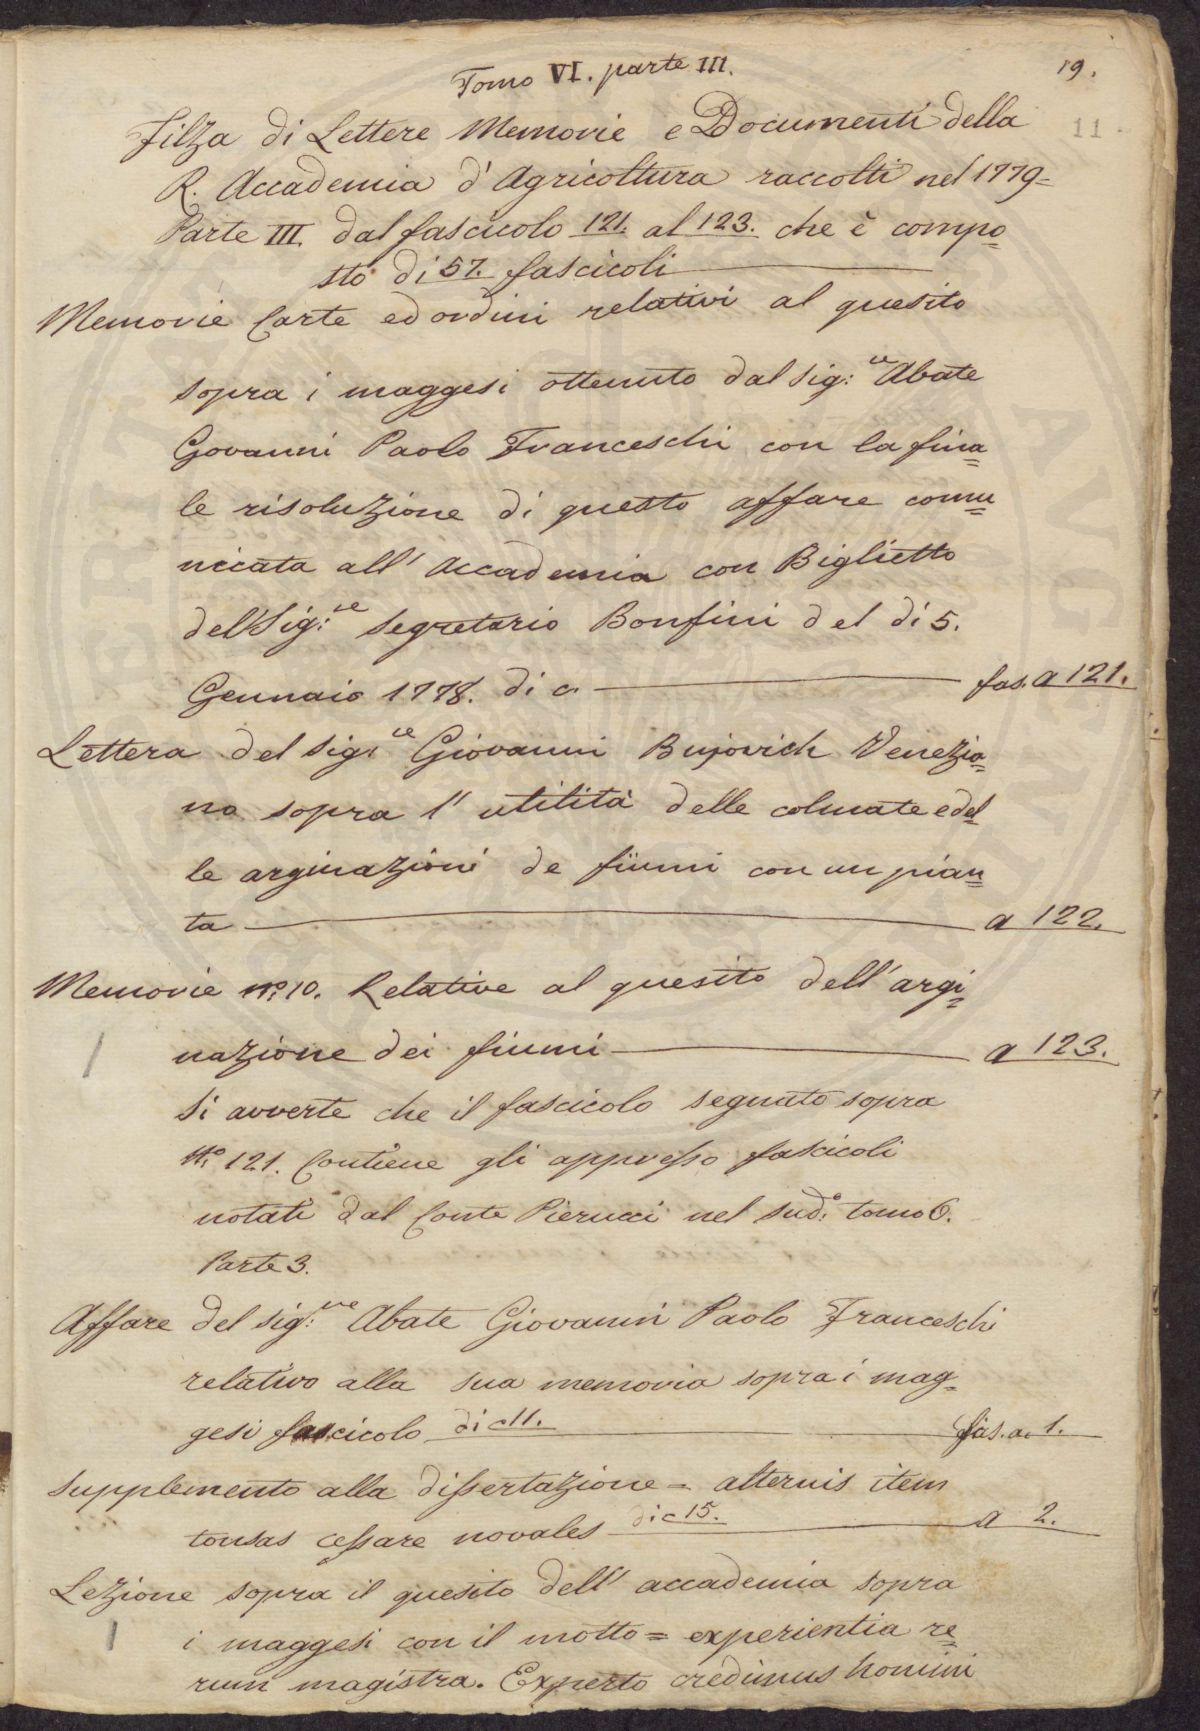 Tomo VI. parte III.
19.
11
Filza di Lettere Memorie e Documenti della
R. Accademia d'Agricoltura raccolti nel 1779=
Parte III. dal fascicolo 121. al 123. che è compo=
sto di 57. fascicoli
Memorie Carte ed ordini relativi al quesito
sopra i maggesi ottenuto dal Sig:re Abate
Govanni Paolo Franceschi con la fina=
le risoluzione di questo affare comu=
nicata all' Accademia con Biglietto
del Sig:re Segretario Bonfini del di 5.
Gennaio 1778. di c. fas. a 121.
Lettera del Sig:re Giovanni Bujovich Venezia=
no sopra l'utilità delle colmate e del=
le arginazioni de fiumi con un pian=
ta a 122.
Memorie N.º 10. Relative al quesito dell'argi=
nazione dei fiumi a 123.
Si avverte che il fascicolo segnato sopra
N.º 121. Contiene gli appresso fascicoli
notati dal Conte Pierucci nel sud.º tomo 6.
Parte 3.
Affare del Sig:re Abate Giovanni Paolo Franceschi
relativo alla sua memoria sopra i mag=
gesi fascicolo di c 11. fas. a. 1.
Supplemento alla dissertazione = alternis item
tonsas cessare novales di c 15. a 2.
Lezione sopra il quesito dell' accademia sopra
i maggesi con il motto = experientia re=
rum magistra. Experto credimus homini